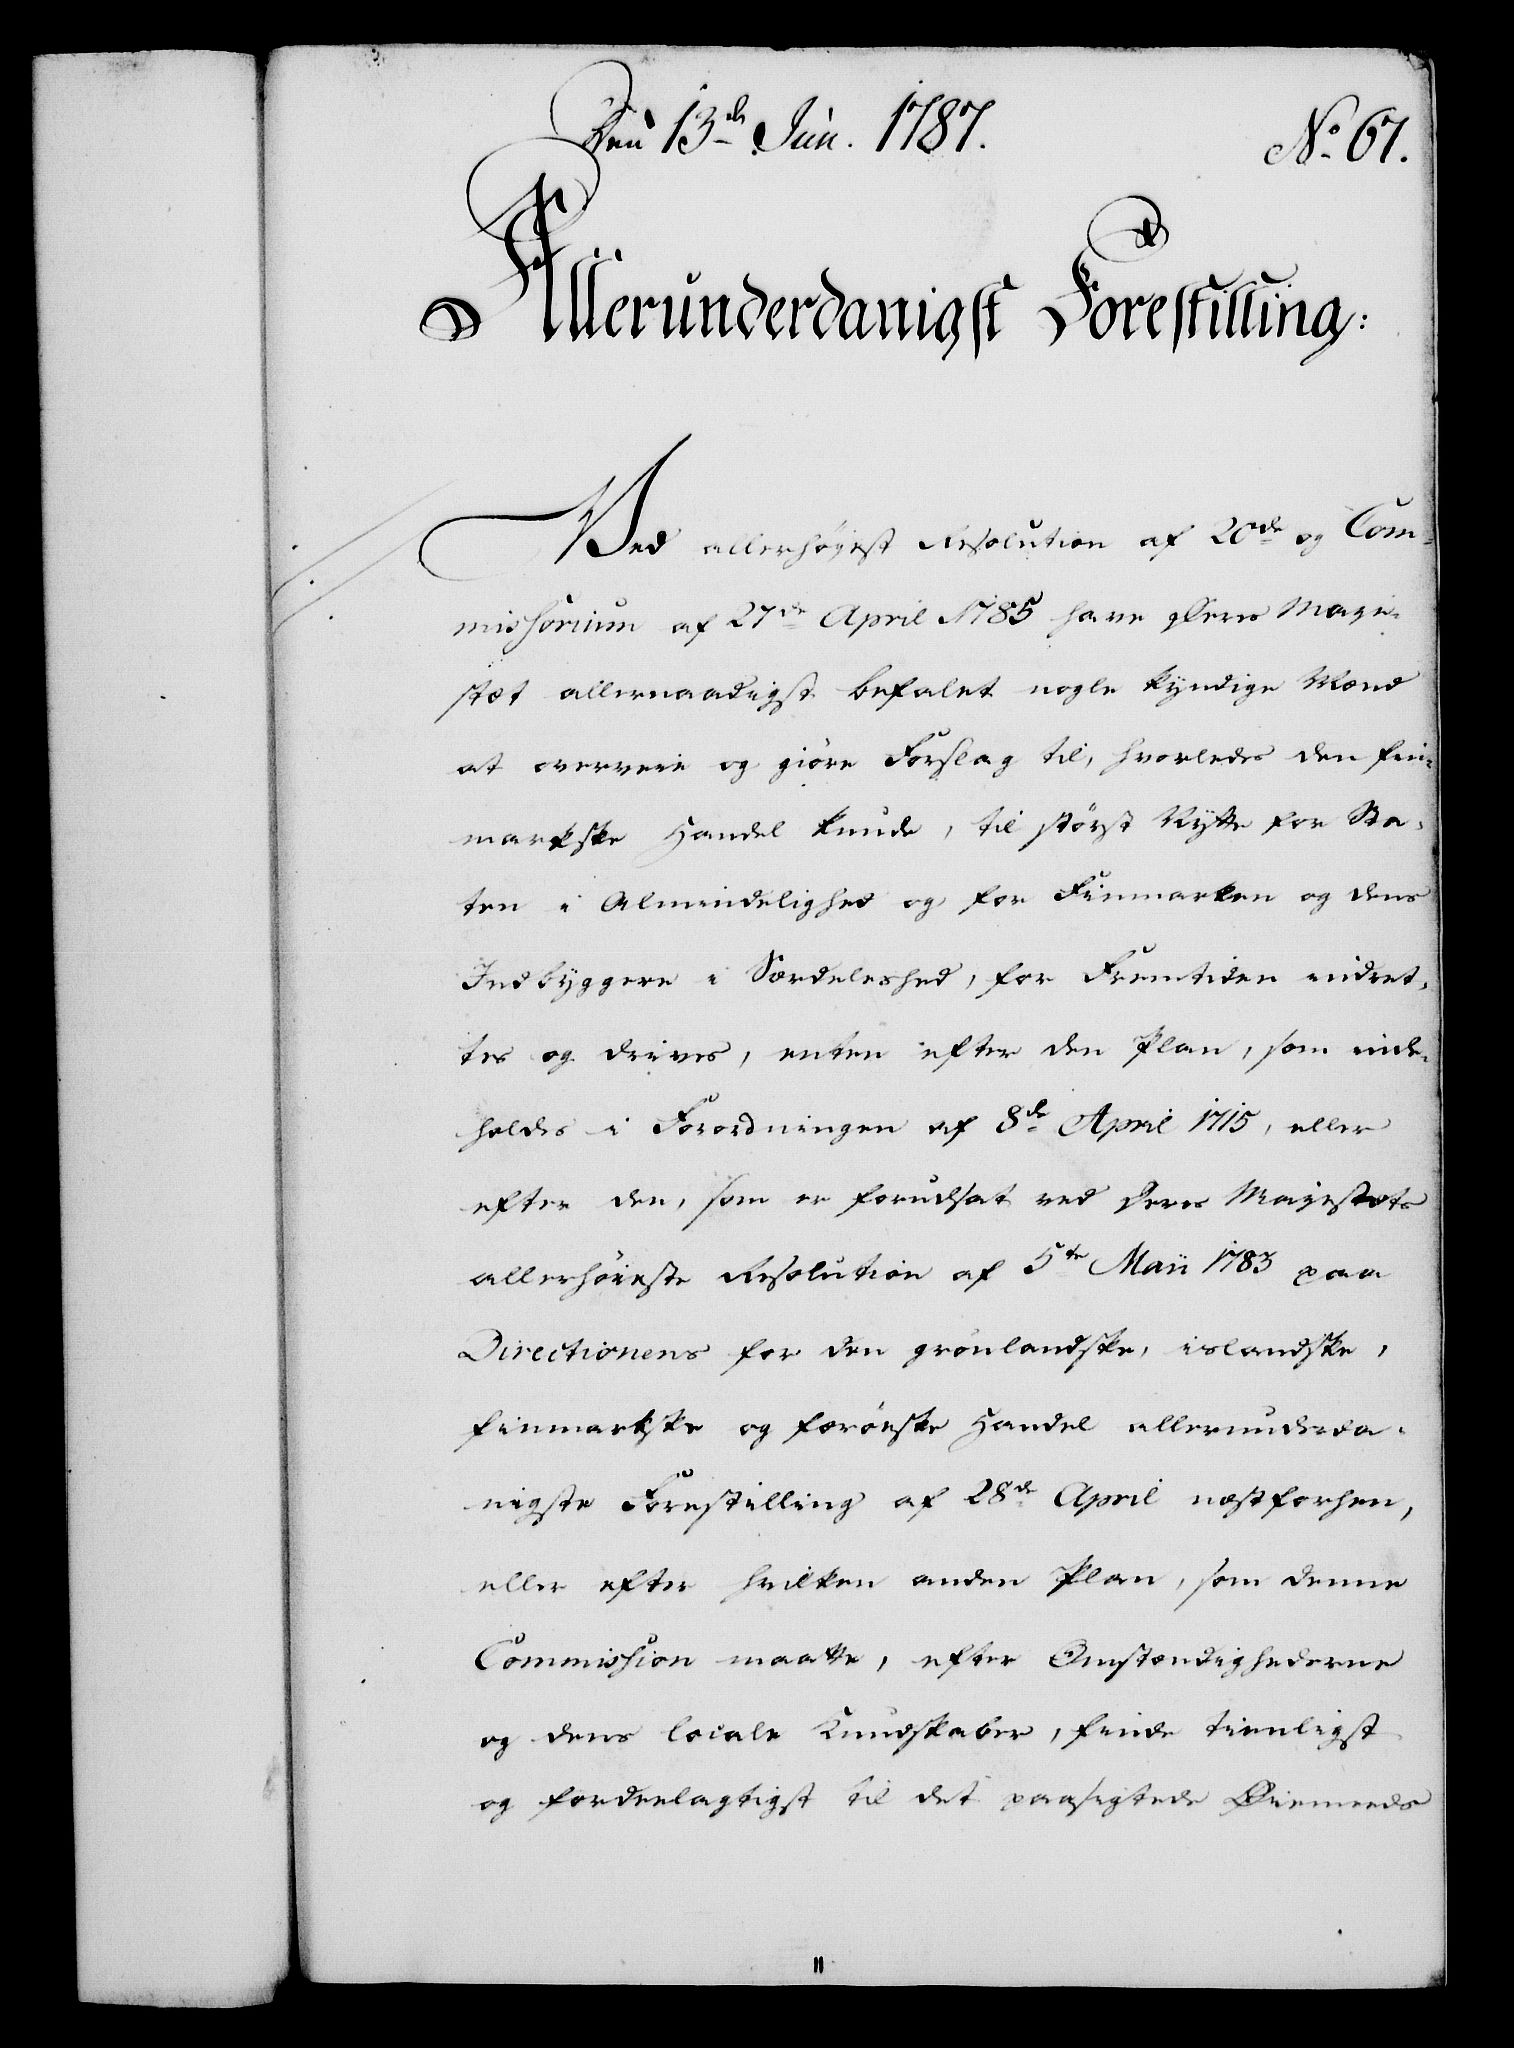 Den 13de Jun. 1787.
No 67.
Allerunderdanigst Forestilling:
Ved allerhøyest Resolution af 20de og Com-
missorium af 27de April 1785 have Deres Maje-
stæt allernaadigst befalet nogle kyndige Mænd
at overveie og giøre Forslag til, hvorledes den fin-
markske Handel kunde, til størst Nytte for Sta-
ten i Almindelighed og for Finmarken og dens
Indbyggere i Særdeleshed, for Fremtiden indret-
tes og drives, enten efter den Plan, som inde-
holdes i Forordningen af 8de April 1715, eller
efter den, som er forudsat ved Deres Majestæts
allerhøieste Resolution af 5te Maii 1783 paa
Directionens for den grønlandske, islandske,
finmarkske og færøeske Handel allerunderda-
nigste Forestilling af 28de April næstforhen,
eller efter hvilken anden Plan, som denne
Commission maatte, efter Omstændighederne
og dens locale Kundskaber, finde tienligst
og fordeelagtigst til det paasigtede Øiemeeds
11